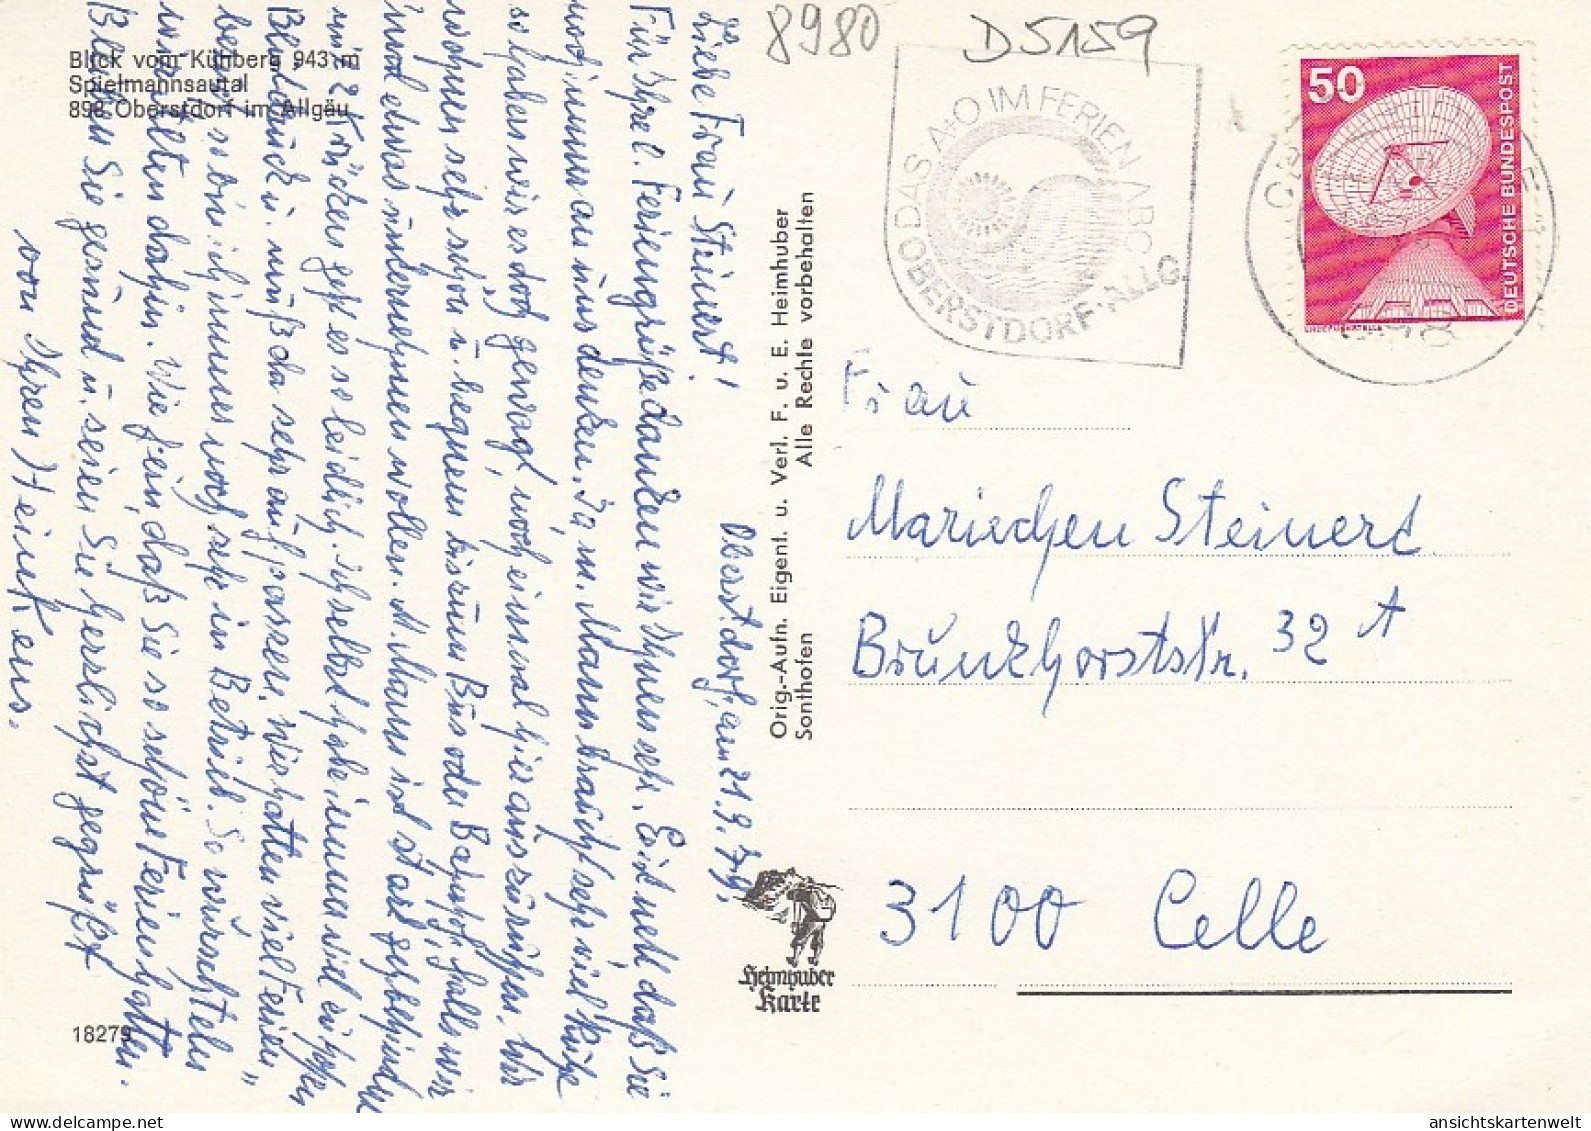 8980
D5159
Blick vom Kühberg 943 m
Spielmannsautal
898 Oberstdorf im Allgäu
DAS A+O IM FERIEN ABC
OBERSTDORF·ALLG.
50
DEUTSCHE BUNDESPOST
ERDEFUNKSTELLE
Oberstdorf, am 21.9.79.
Liebe Frau Steinert!
Für Ihre l. Feriengrüße danken wir Ihnen sehr. Es ist nett daß Sie
noch immer an uns denken. Da m. Mann braucht sehr viel Ruhe
so haben wir es doch gewagt, noch einmal hier auszuruhen. Wir
wohnen sehr schön u. bequem bis zum Bus oder Bahnhof, falls wir
mal etwas unternehmen wollen. M. Mann ist stark gehbehindert
mit 2 Krücken geht es so leidlich. Ich selbst habe immer viel
Blutdruck u. muß da sehr aufpassen. Wir hatten viel Ferien
besuch, so bin ich immer noch sehr in Betrieb. So wurschteln
wir Alten dahin. Wie fein, daß Sie so schöne Ferien hatten.
Bleiben Sie gesund u. seien Sie herzlichst gegrüßt
von Ihren Heinkens.
18279
Orig.-Aufn. Eigent. u. Verl. F. u. E. Heimhuber
Sonthofen Alle Rechte vorbehalten
Heimhuber
Karte
Frau
Mariechen Steinert
Brunkhorststr. 32 A
3100 Celle
ansichtskartenwelt.de
ansichtskartenwelt